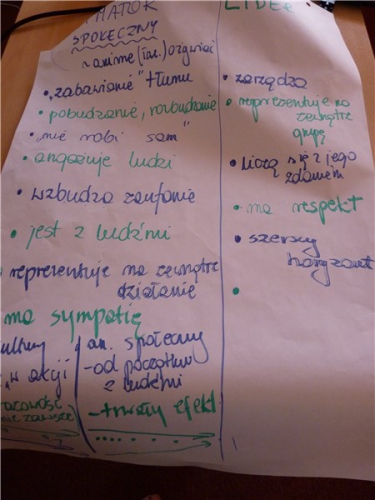 MATOR
SPOŁECZNY
z anime (łac.) ożywiać
• „zabawianie" tłumu
• pobudzanie, rozbudzanie
• „nie robi sam"
• angażuje ludzi
• wzbudza zaufanie
• jest z ludźmi
reprezentuje na zewnątrz
działanie
ma sympatię
"w akcji
an. społeczny
- od początku
z ludźmi
- trwały efekt
LIDER
• zarządza
• reprezentuje na
zewnątrz
grupę
• liczą się z jego
zdaniem
• ma respekt
• szerszy
horyzont